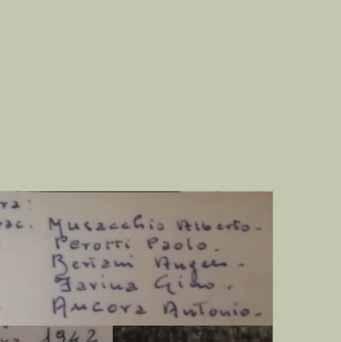 ra:
ac. Musacchio Alberto.
Perotti Paolo.
Beriani Angelo.
Farina Gino.
Ancora Antonio.
1942